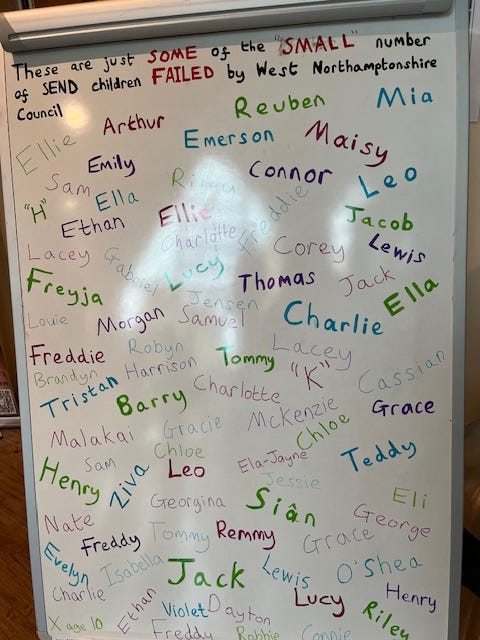 These are just SOME of the "SMALL" number
of SEND children FAILED by West Northamptonshire
Council
Arthur Reuben Mia
Ellie Emerson Maisy
Emily Riley Connor Leo
Sam Ella Freddie
"H" Ethan Ellie Jacob
Charlotte Corey Lewis
Lacey Gabriel Lucy
Freyja Thomas Jack
Jensen Ella
Louie Morgan Samuel Charlie
Freddie Robyn Tommy Lacey
Brandyn Harrison "K" Cassian
Tristan Barry Charlotte
Malakai Gracie Mckenzie Grace
Chloe Chloe
Sam Leo Ela-Jayne Teddy
Henry Ziva Jessie
Georgina Siân Eli
Nate George
Freddy Tommy Remmy Grace
Evelyn Isabella Jack Lewis O'Shea
Charlie Ethan Lucy Henry
X age 10 Violet Dayton Riley
Freddy Robbie Connie